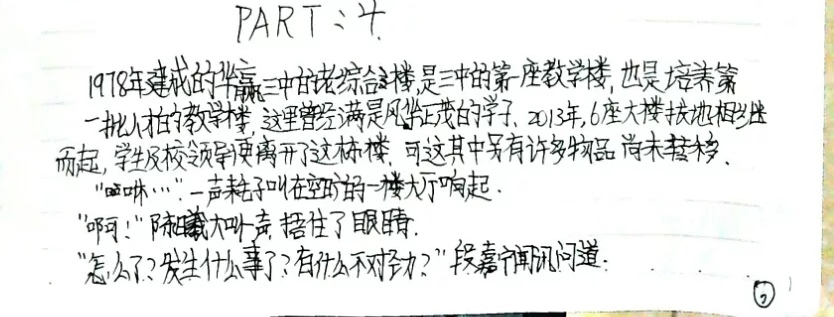 PART:4.
1978年建成的华赢三中的老综合楼,是三中的第一座教学楼,也是培养第
一批人才的教学楼,这里曾经满是风华正茂的学子.2013年,6座大楼拔地相继
而起,学生及校领导便离开了这栋楼.可这其中另有许多物品尚未转移.
"咪…".一声耗子叫在空旷的一楼大厅响起.
"啊!"陈曦大叫一声,捂住了眼睛.
"怎么了?发生什么事了?有什么不对劲?"段嘉宁闻讯问道.
②